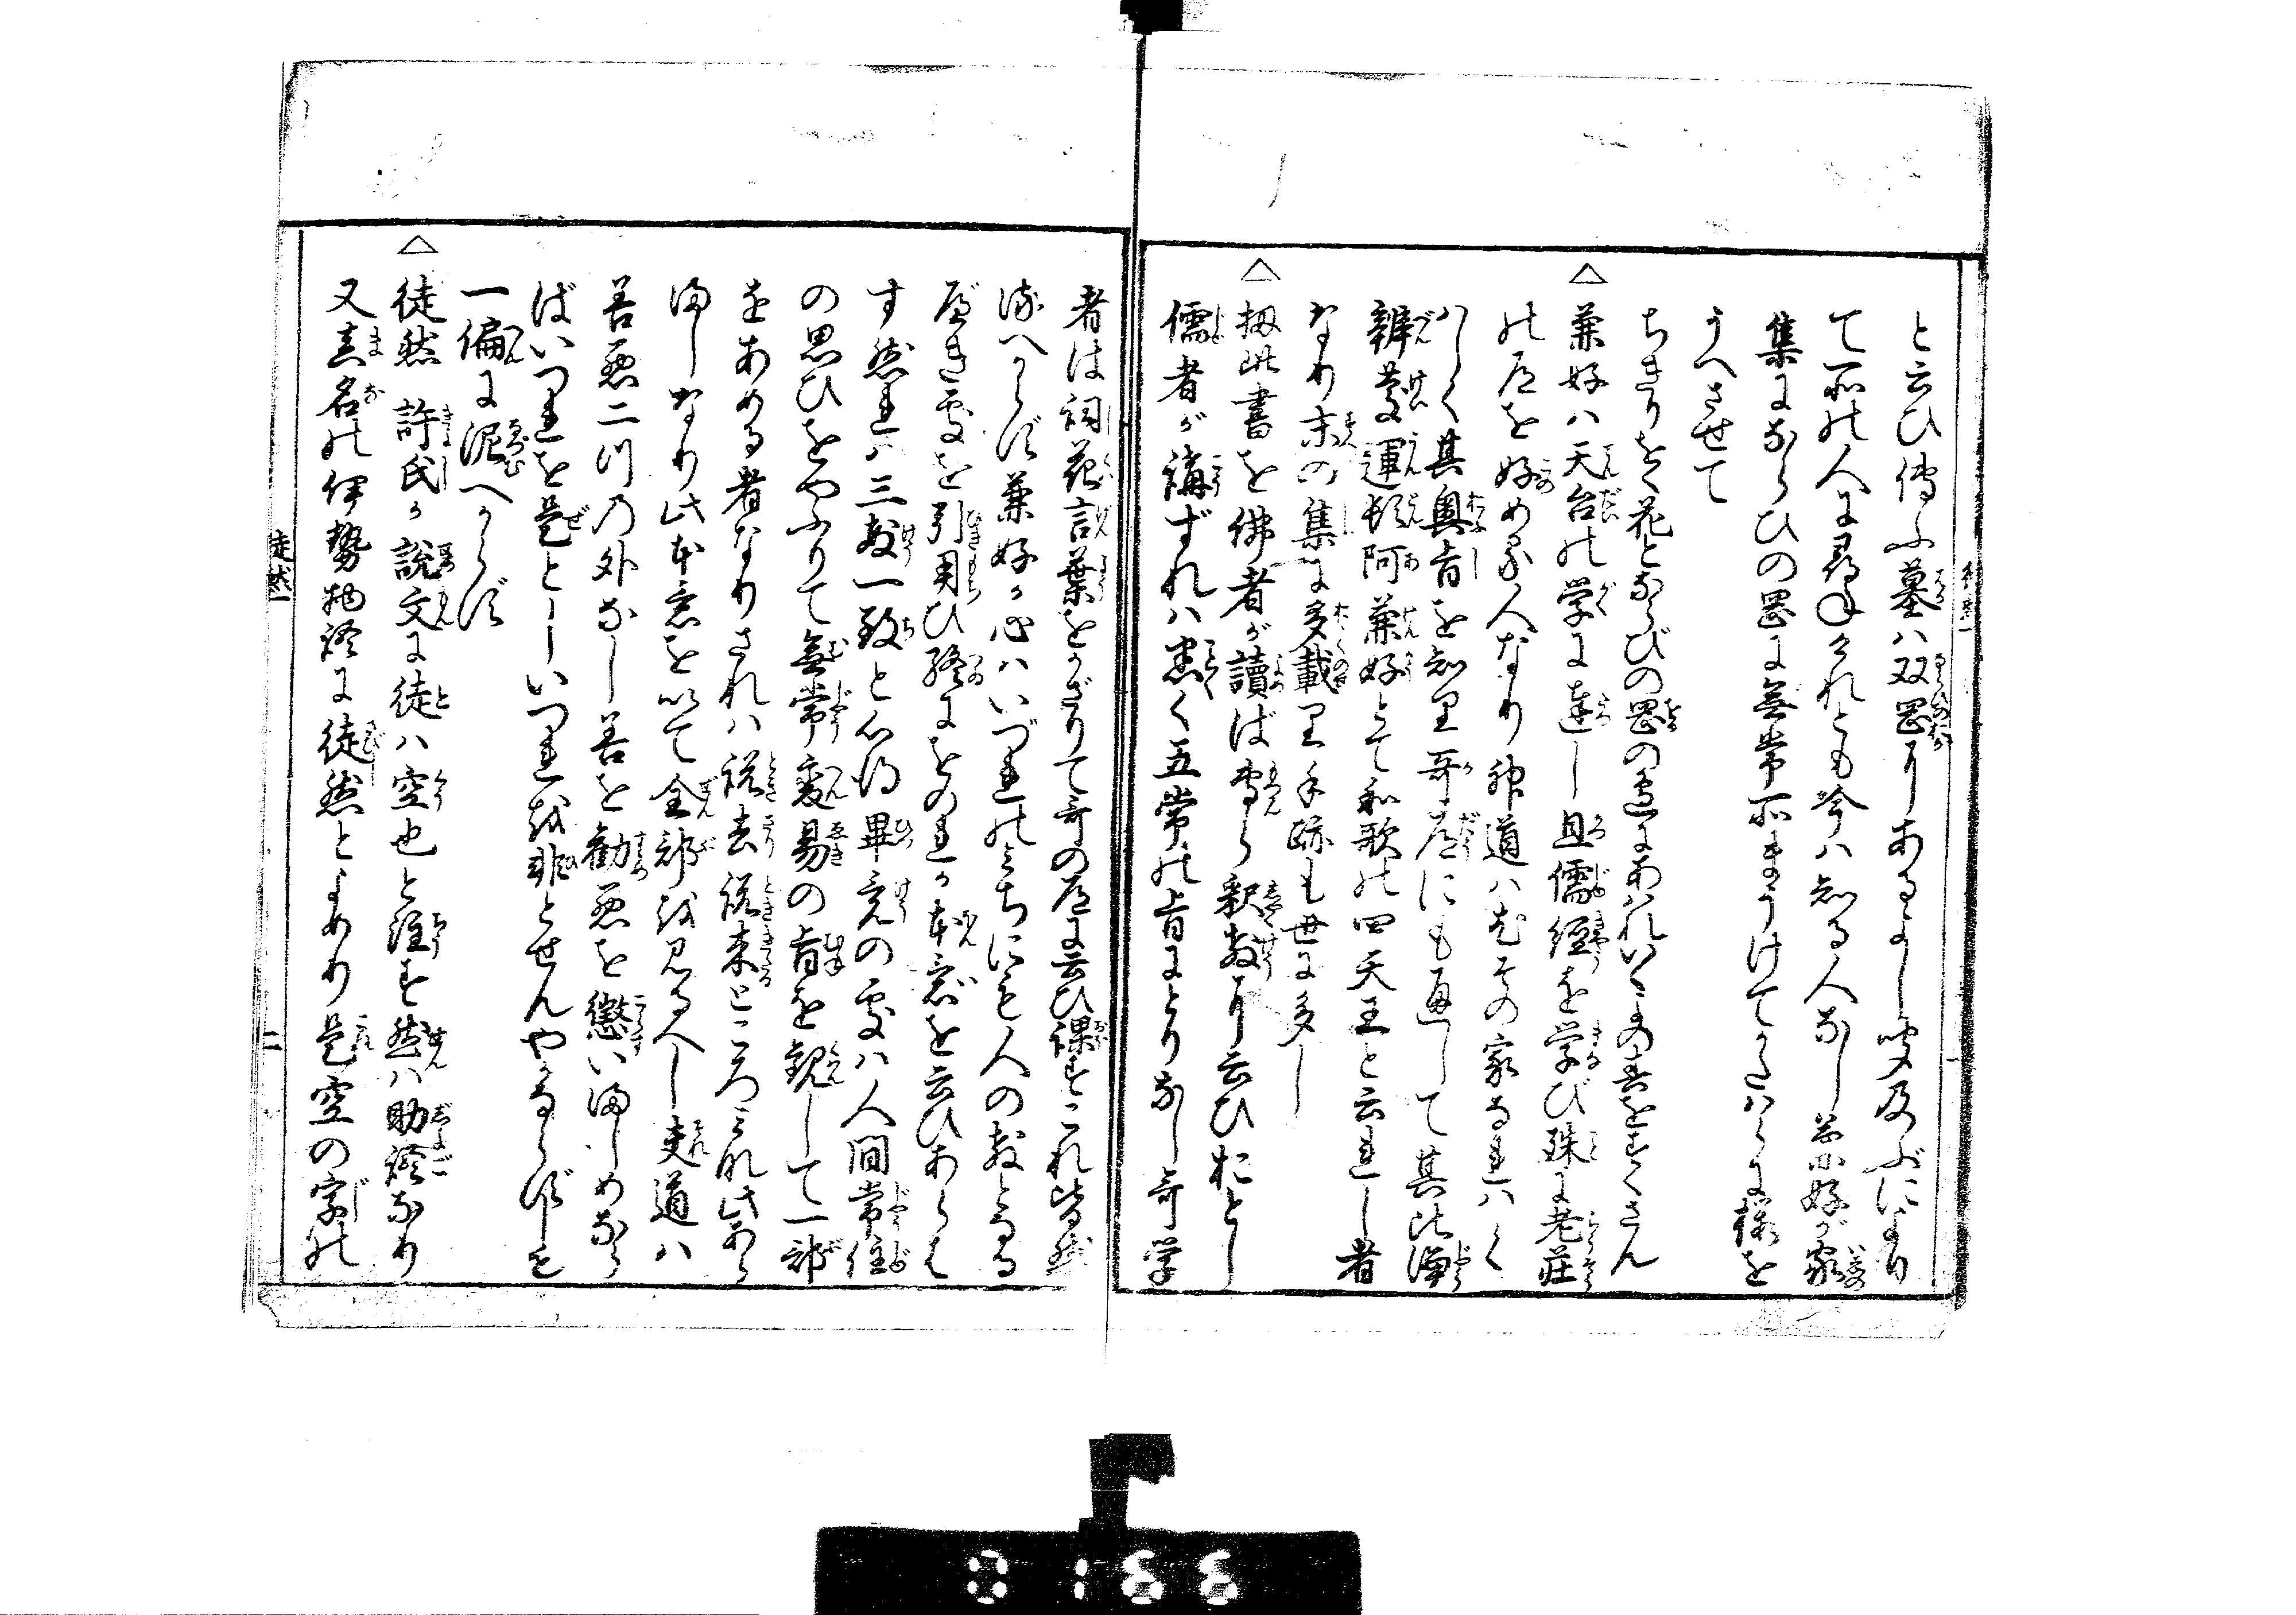 と云ひ傳ふ墓ハ双岡にあるよし聞及ぶにより
て所の人に尋ねけれとも今ハ知る人なし兼好が家
集にならひの岡に無常所まうけてかたハらに桜を
うへさせて
ちきりをく花とならびの岡の邊にあはれいくよの春をすくさん
△兼好ハ天台の学に達し且儒經を学び殊に老荘
の道を好める人なり神道ハ元その家なれハくハ
しく其奥旨を知り哥道にも通して其比淨
辨慶運頓阿兼好とて和歌の四天王と云れし者
なり末の集に多載り手跡も世に多し
△扨此書を佛者が讀ば専ら釈教に云ひおとし
儒者が講ずれハ悉く五常の旨にとりなし哥学
者は詞花言葉をかざりて哥の道に云ひ課すこれ皆然
るへからず兼好か心ハいづれのみちにも人の教となる
べき事を引用ひ終にをのれか本意を云ひあらは
す然れハ三教一致と心得畢竟の處ハ人間常住
の思ひをやふりて無常変易の旨を観して一部
をあめる者なりされハ説去説来ところミな此あら
ましなり此本意を以て全部を見るへし夫道ハ
善悪二つの外なし善を勧悪を懲いましめなら
ばいつれを是としいつれを非とせんやかならずしも
一偏に泥へからず
△徒然 許氏か説文に徒ハ空也と註す然ハ助語なり
又真名の伊勢物語に徒然とよめり是空の字の
徒然一
二
0166